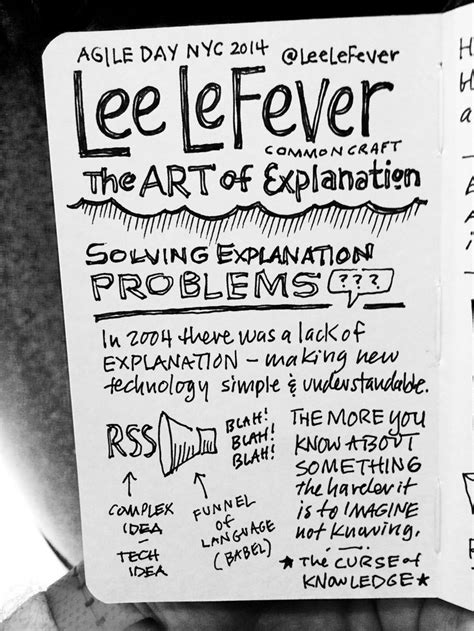 AGILE DAY NYC 2014 @LeeLeFever
Lee LeFever
COMMONCRAFT
The ART of Explanation
SOLVING EXPLANATION
PROBLEMS ???
In 2004 there was a lack of
EXPLANATION – making new
technology simple & understandable.
RSS
BLAH!
BLAH!
BLAH!
COMPLEX
IDEA
TECH
IDEA
FUNNEL
of
LANGUAGE
(BABEL)
THE MORE YOU
KNOW ABOUT
SOMETHING
the harder it
is to IMAGINE
not knowing.
★ The CURSE of
KNOWLEDGE ★